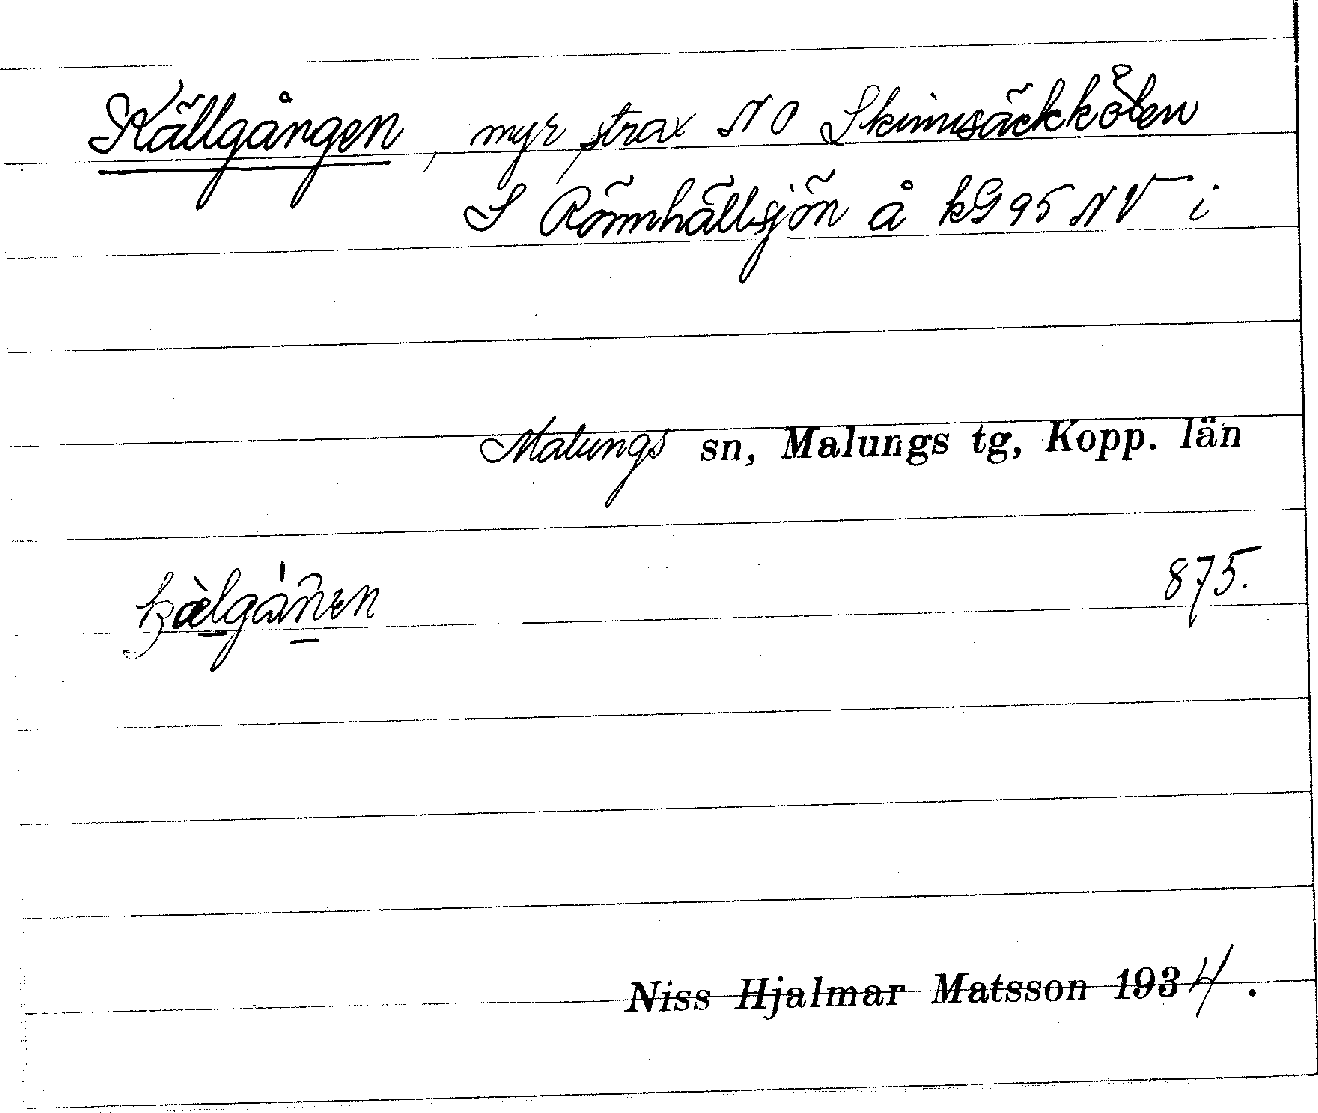 Källgången, myr, strax NO Skinnsäckkölen
S Rönnhällsjön å kG 95 NV i
Malungs sn, Malungs tg, Kopp. län
875.
Niss Hjalmar Matsson 1934.